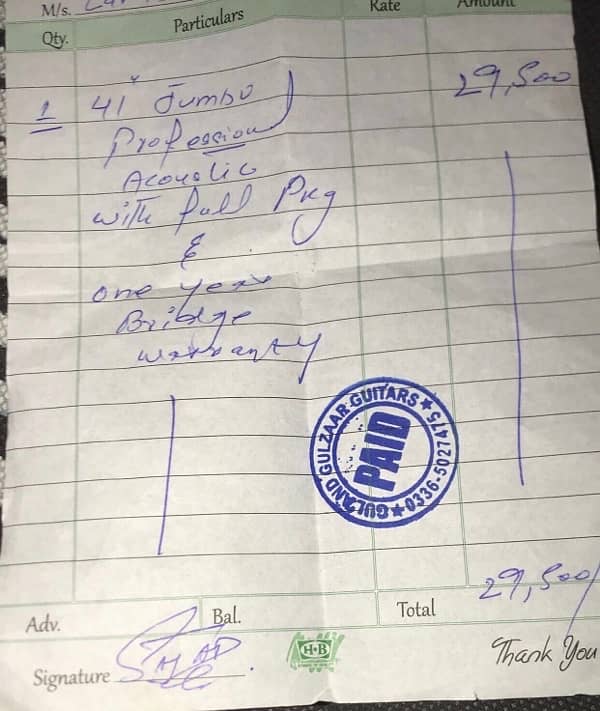 M/s.
Qty. Particulars Rate Amount
1 41" Jumbo 29,500
Professional
Acoustic
with full Pkg
&
one year
Bridge
warranty
GULZAAR GUITARS ★ 0336-5027475 ★
PAID
29,500/
Adv. Bal. Total
H·B
Signature SAJJAD
Thank You